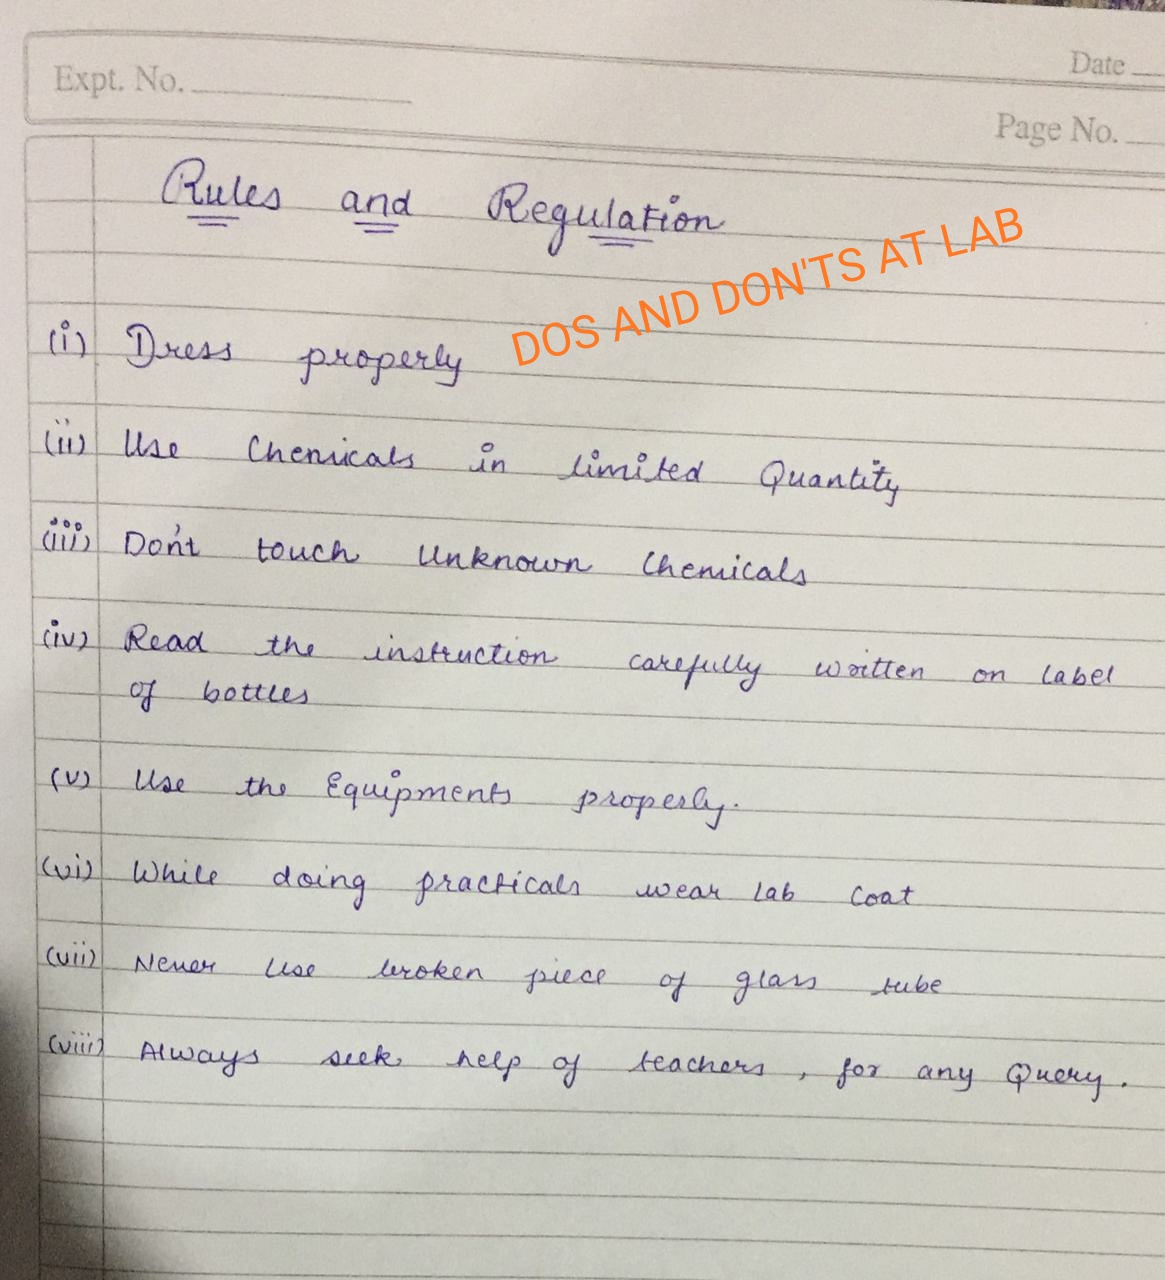 Expt. No.
Date
Page No.
Rules and Regulation
DOS AND DON'TS AT LAB
(i) Dress properly
(ii) Use Chemicals in limited Quantity
(iii) Don't touch Unknown Chemicals
(iv) Read the instruction carefully written on label
of bottles
(v) Use the Equipments properly.
(vi) While doing practicals wear lab Coat
(vii) Never Use broken piece of glass tube
(viii) Always seek help of teachers, for any Query.